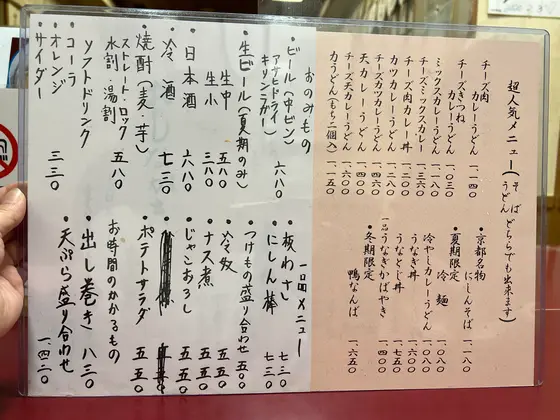 超人気メニュー(そば うどん どちらでも出来ます)
チーズ肉カレーうどん 一、一四〇
チーズきつねカレーうどん 一、〇三〇
ミックスカレー 一、一八〇
チーズミックスカレー 一、三六〇
カツカレーうどん 一、二八〇
チーズ肉カレー丼
天カレーうどん
チーズカツカレーうどん
チーズ天カレーうどん 一、六〇〇
力うどん(もち二個入) 一、一五〇
・京都名物 にしんそば 一、一八〇
・夏期限定
冷麺 一、〇八〇
冷やしカレーうどん 一、〇八〇
うなぎ丼
うなとじ丼 一、七五〇
一品うなぎかばやき 一、四〇〇
・冬期限定
鴨なんば 一、六五〇
おのみもの
・ビール(中ビン) 六八〇
アサヒドライ
キリンラガー
・生ビール(夏期のみ)
生中 五八〇
生小 三八〇
・日本酒 六八〇
・冷酒 七三〇
・焼酎(麦・芋)
ストレート ロック
水割 湯割 五八〇
ソフトドリンク
・コーラ
・オレンジ
・サイダー 三三〇
一品メニュー
・板わさ 七三〇
・にしん棒 七三〇
・つけもの盛り合わせ 五五〇
・冷奴 五五〇
・ナス煮 五五〇
・じゃこおろし 五五〇
・ポテトサラダ 五五〇
お時間のかかるもの
・出し巻き 八三〇
・天ぷら盛り合わせ 一、四三〇